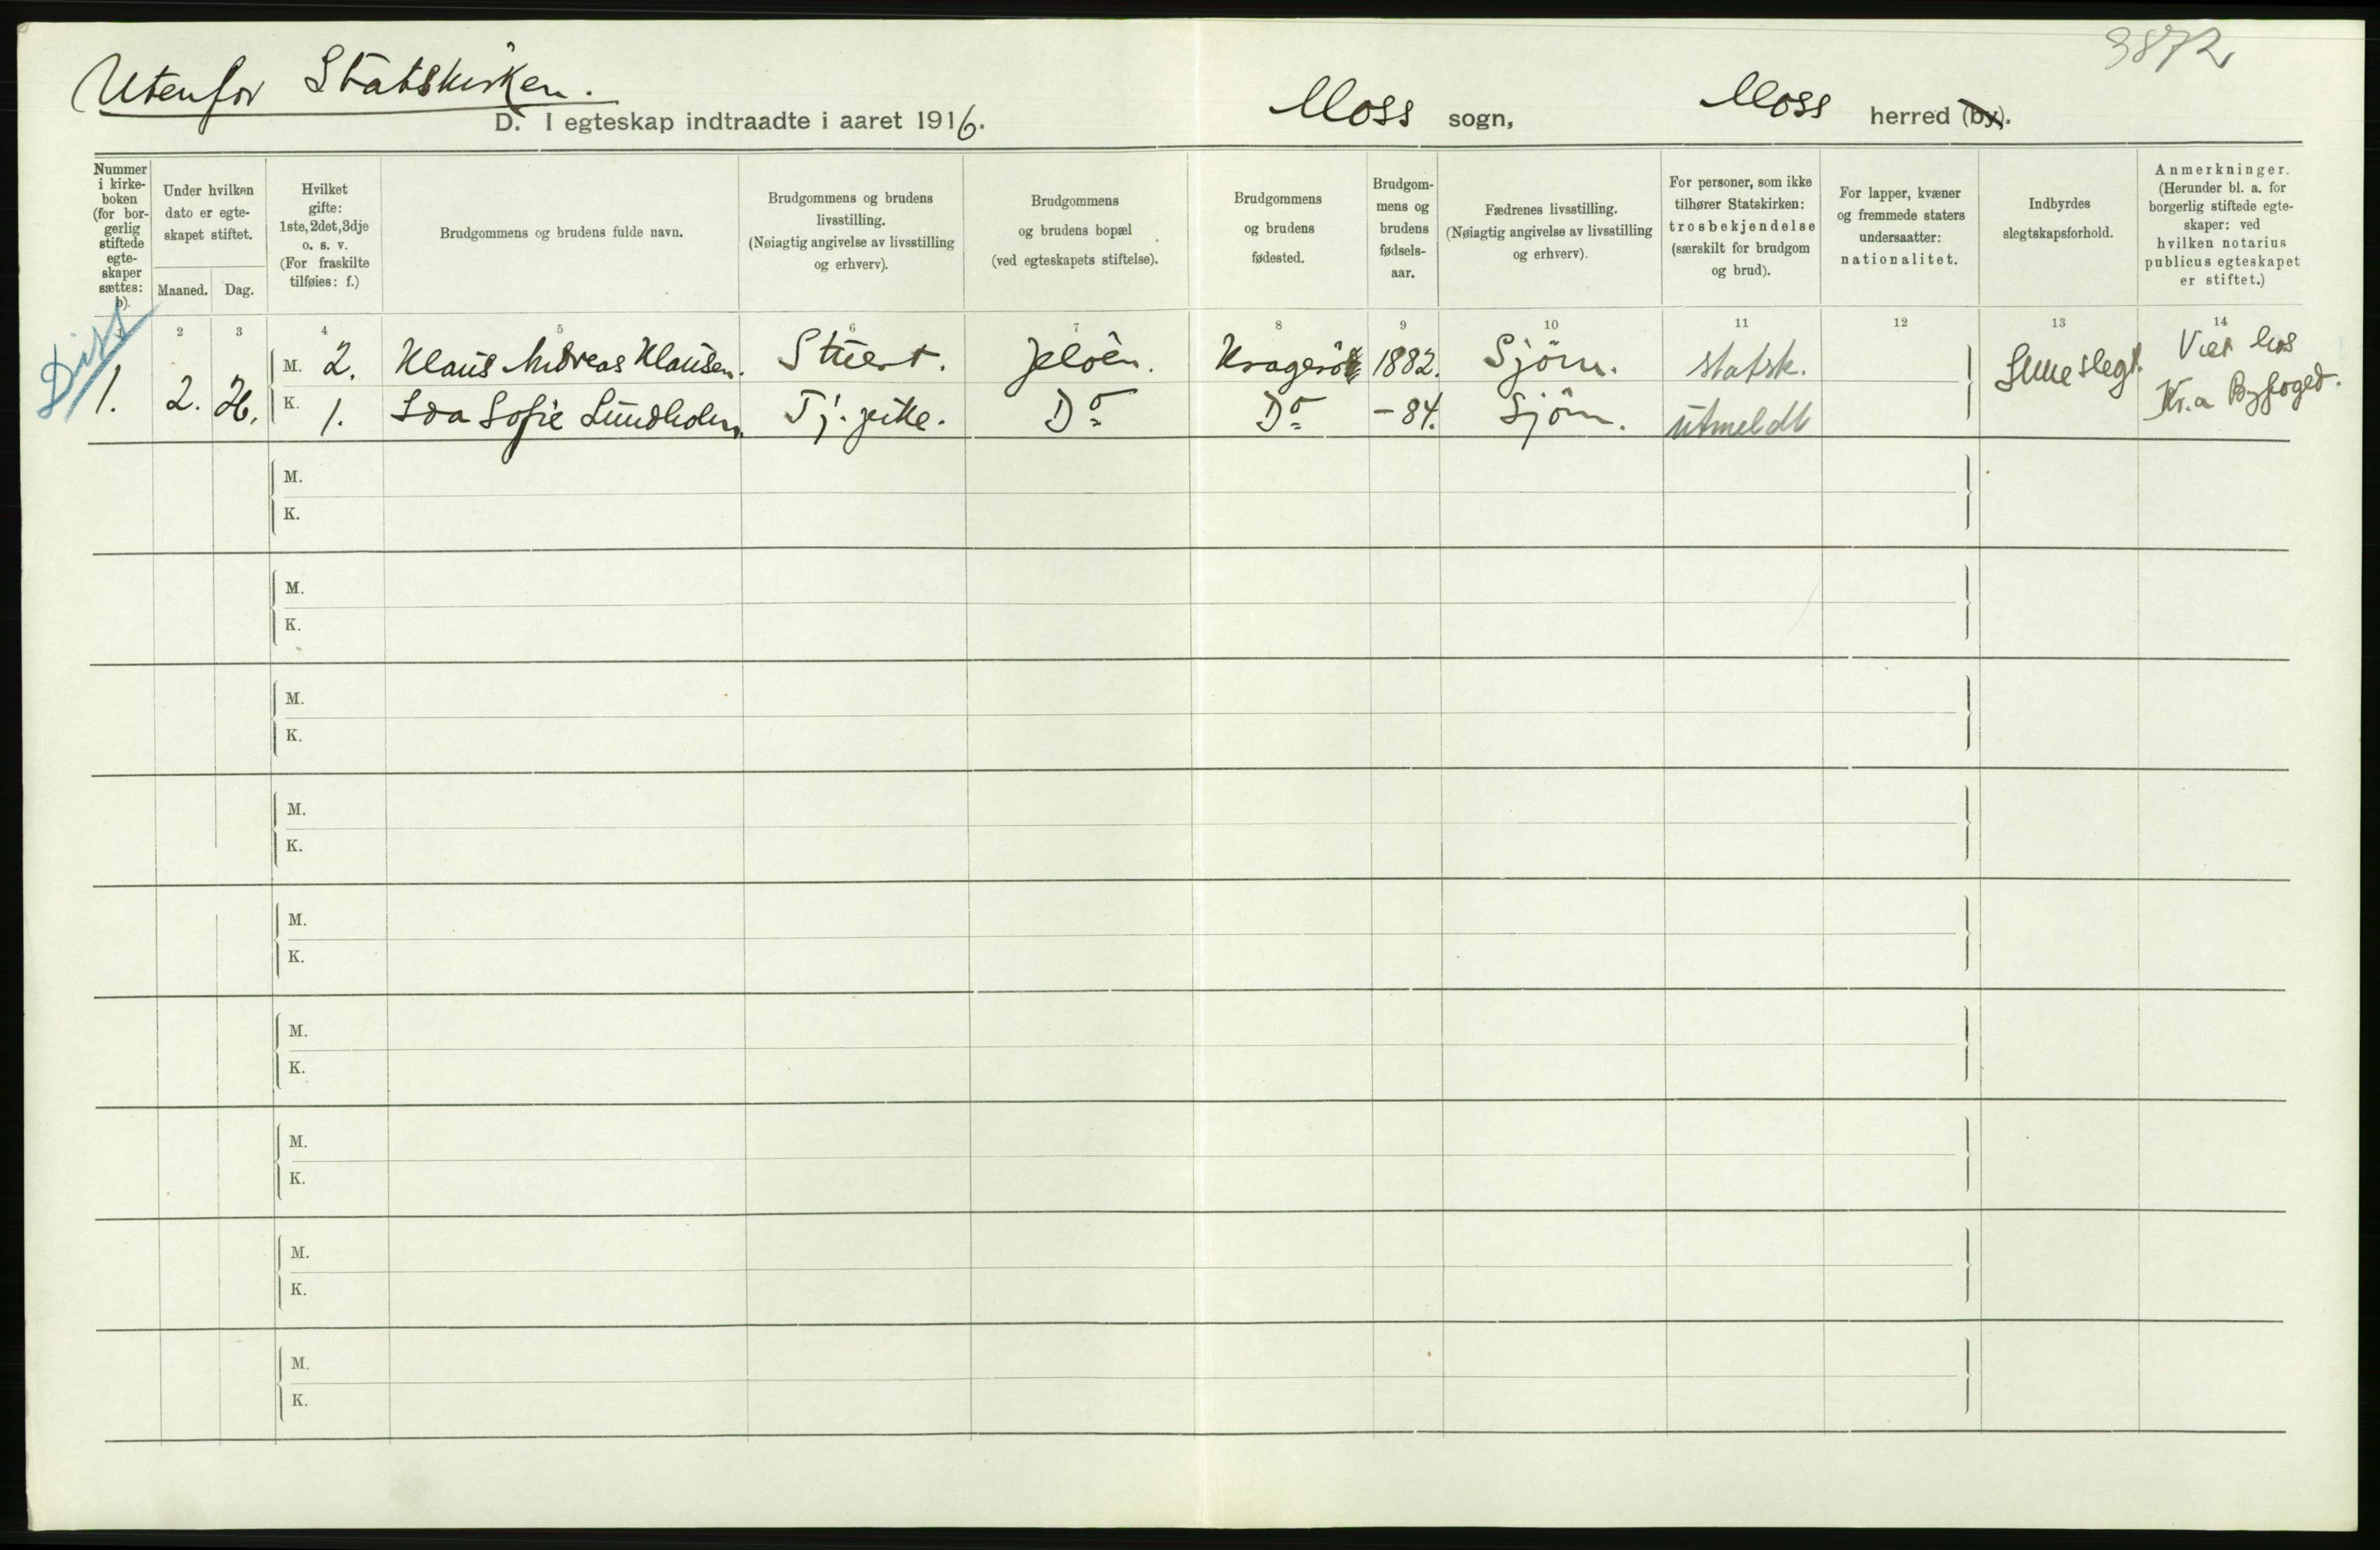 3872
Utenfor Statskirken.
D. I egteskap indtraadte i aaret 1916.
Moss sogn,
Moss herred (by).
Nummer
i kirke-
boken
(for bor-
gerlig
stiftede
egte-
skaper
sættes:
b).
Under hvilken
dato er egte-
skapet stiftet.
Maaned. Dag.
Hvilket
gifte:
1ste, 2det, 3dje
o. s. v.
(For fraskilte
tilføies: f.)
Brudgommens og brudens fulde navn.
Brudgommens og brudens
livsstilling.
(Nøiagtig angivelse av livsstilling
og erhverv).
Brudgommens
og brudens bopæl
(ved egteskapets stiftelse).
Brudgommens
og brudens
fødested.
Brudgom-
mens og
brudens
fødsels-
aar.
Fædrenes livsstilling.
(Nøiagtig angivelse av livsstilling
og erhverv).
For personer, som ikke
tilhører Statskirken:
trosbekjendelse
(særskilt for brudgom
og brud).
For lapper, kvæner
og fremmede staters
undersaatter:
nationalitet.
Indbyrdes
slegtskapsforhold.
Anmerkninger.
(Herunder bl. a. for
borgerlig stiftede egte-
skaper: ved
hvilken notarius
publicus egteskapet
er stiftet.)
1 2 3 4 5 6 7 8 9 10 11 12 13 14
Diss
1. 2. 26.
M. 2. Klaus Andreas Klausen. Stuert. Jeløen. Kragerø 1882. Sjøm. statsk.
K. 1. Ida Sofie Lundholm. Tj. pike. Do Do - 84. Sjøm. utmeldt
slegt.
Viet hos
Kr.a Byfoged.
M.
K.
M.
K.
M.
K.
M.
K.
M.
K.
M.
K.
M.
K.
M.
K.
M.
K.